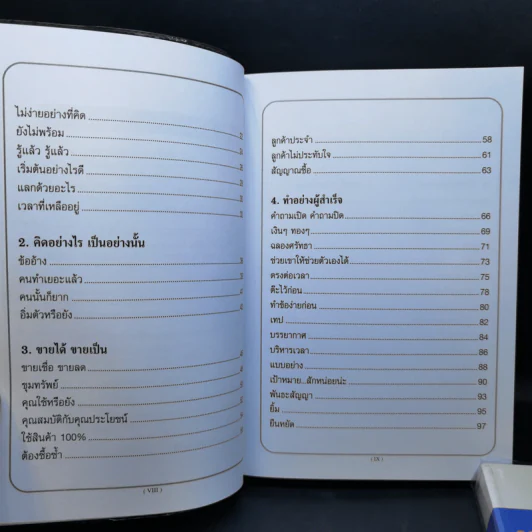 ไม่ง่ายอย่างที่คิด
ยังไม่พร้อม
รู้แล้ว รู้แล้ว
เริ่มต้นอย่างไรดี
แลกด้วยอะไร
เวลาที่เหลืออยู่
2. คิดอย่างไร เป็นอย่างนั้น
ข้ออ้าง
คนทำเยอะแล้ว
คนนั้นก็ยาก
อิ่มตัวหรือยัง
3. ขายได้ ขายเป็น
ขายเชื่อ ขายลด
ขุมทรัพย์
คุณใช้หรือยัง
คุณสมบัติกับคุณประโยชน์
ใช้สินค้า 100%
ต้องซื้อซ้ำ
( VIII )
ลูกค้าประจำ 58
ลูกค้าไม่ประทับใจ 61
สัญญาณซื้อ 63
4. ทำอย่างผู้สำเร็จ
คำถามเปิด คำถามปิด 66
เงินๆ ทองๆ 69
ฉลองศรัทธา 71
ช่วยเขาให้ช่วยตัวเองได้ 73
ตรงต่อเวลา 75
ต๊ะไว้ก่อน 78
ทำข้อง่ายก่อน 80
เทป 82
บรรยากาศ 84
บริหารเวลา 86
แบบอย่าง 88
เป้าหมาย...สักหน่อยน่ะ 90
พันธะสัญญา 93
ยิ้ม 95
ยืนหยัด 97
( IX )